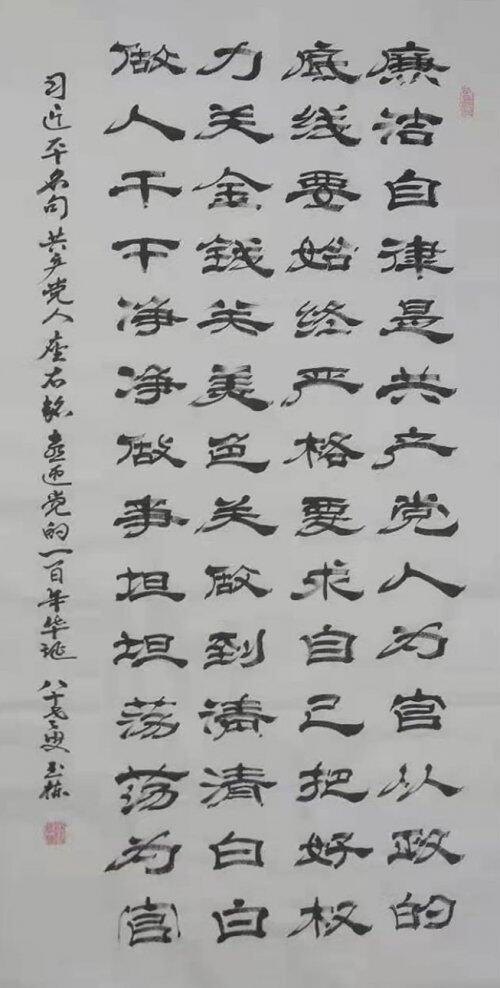 廉洁自律是共产党人为官从政的
底线要始终严格要求自己把好权
力关金钱关美色关做到清清白白
做人干干净净做事坦坦荡荡为官
习近平名句共产党人座右铭喜迎党的一百年华诞 八十叟